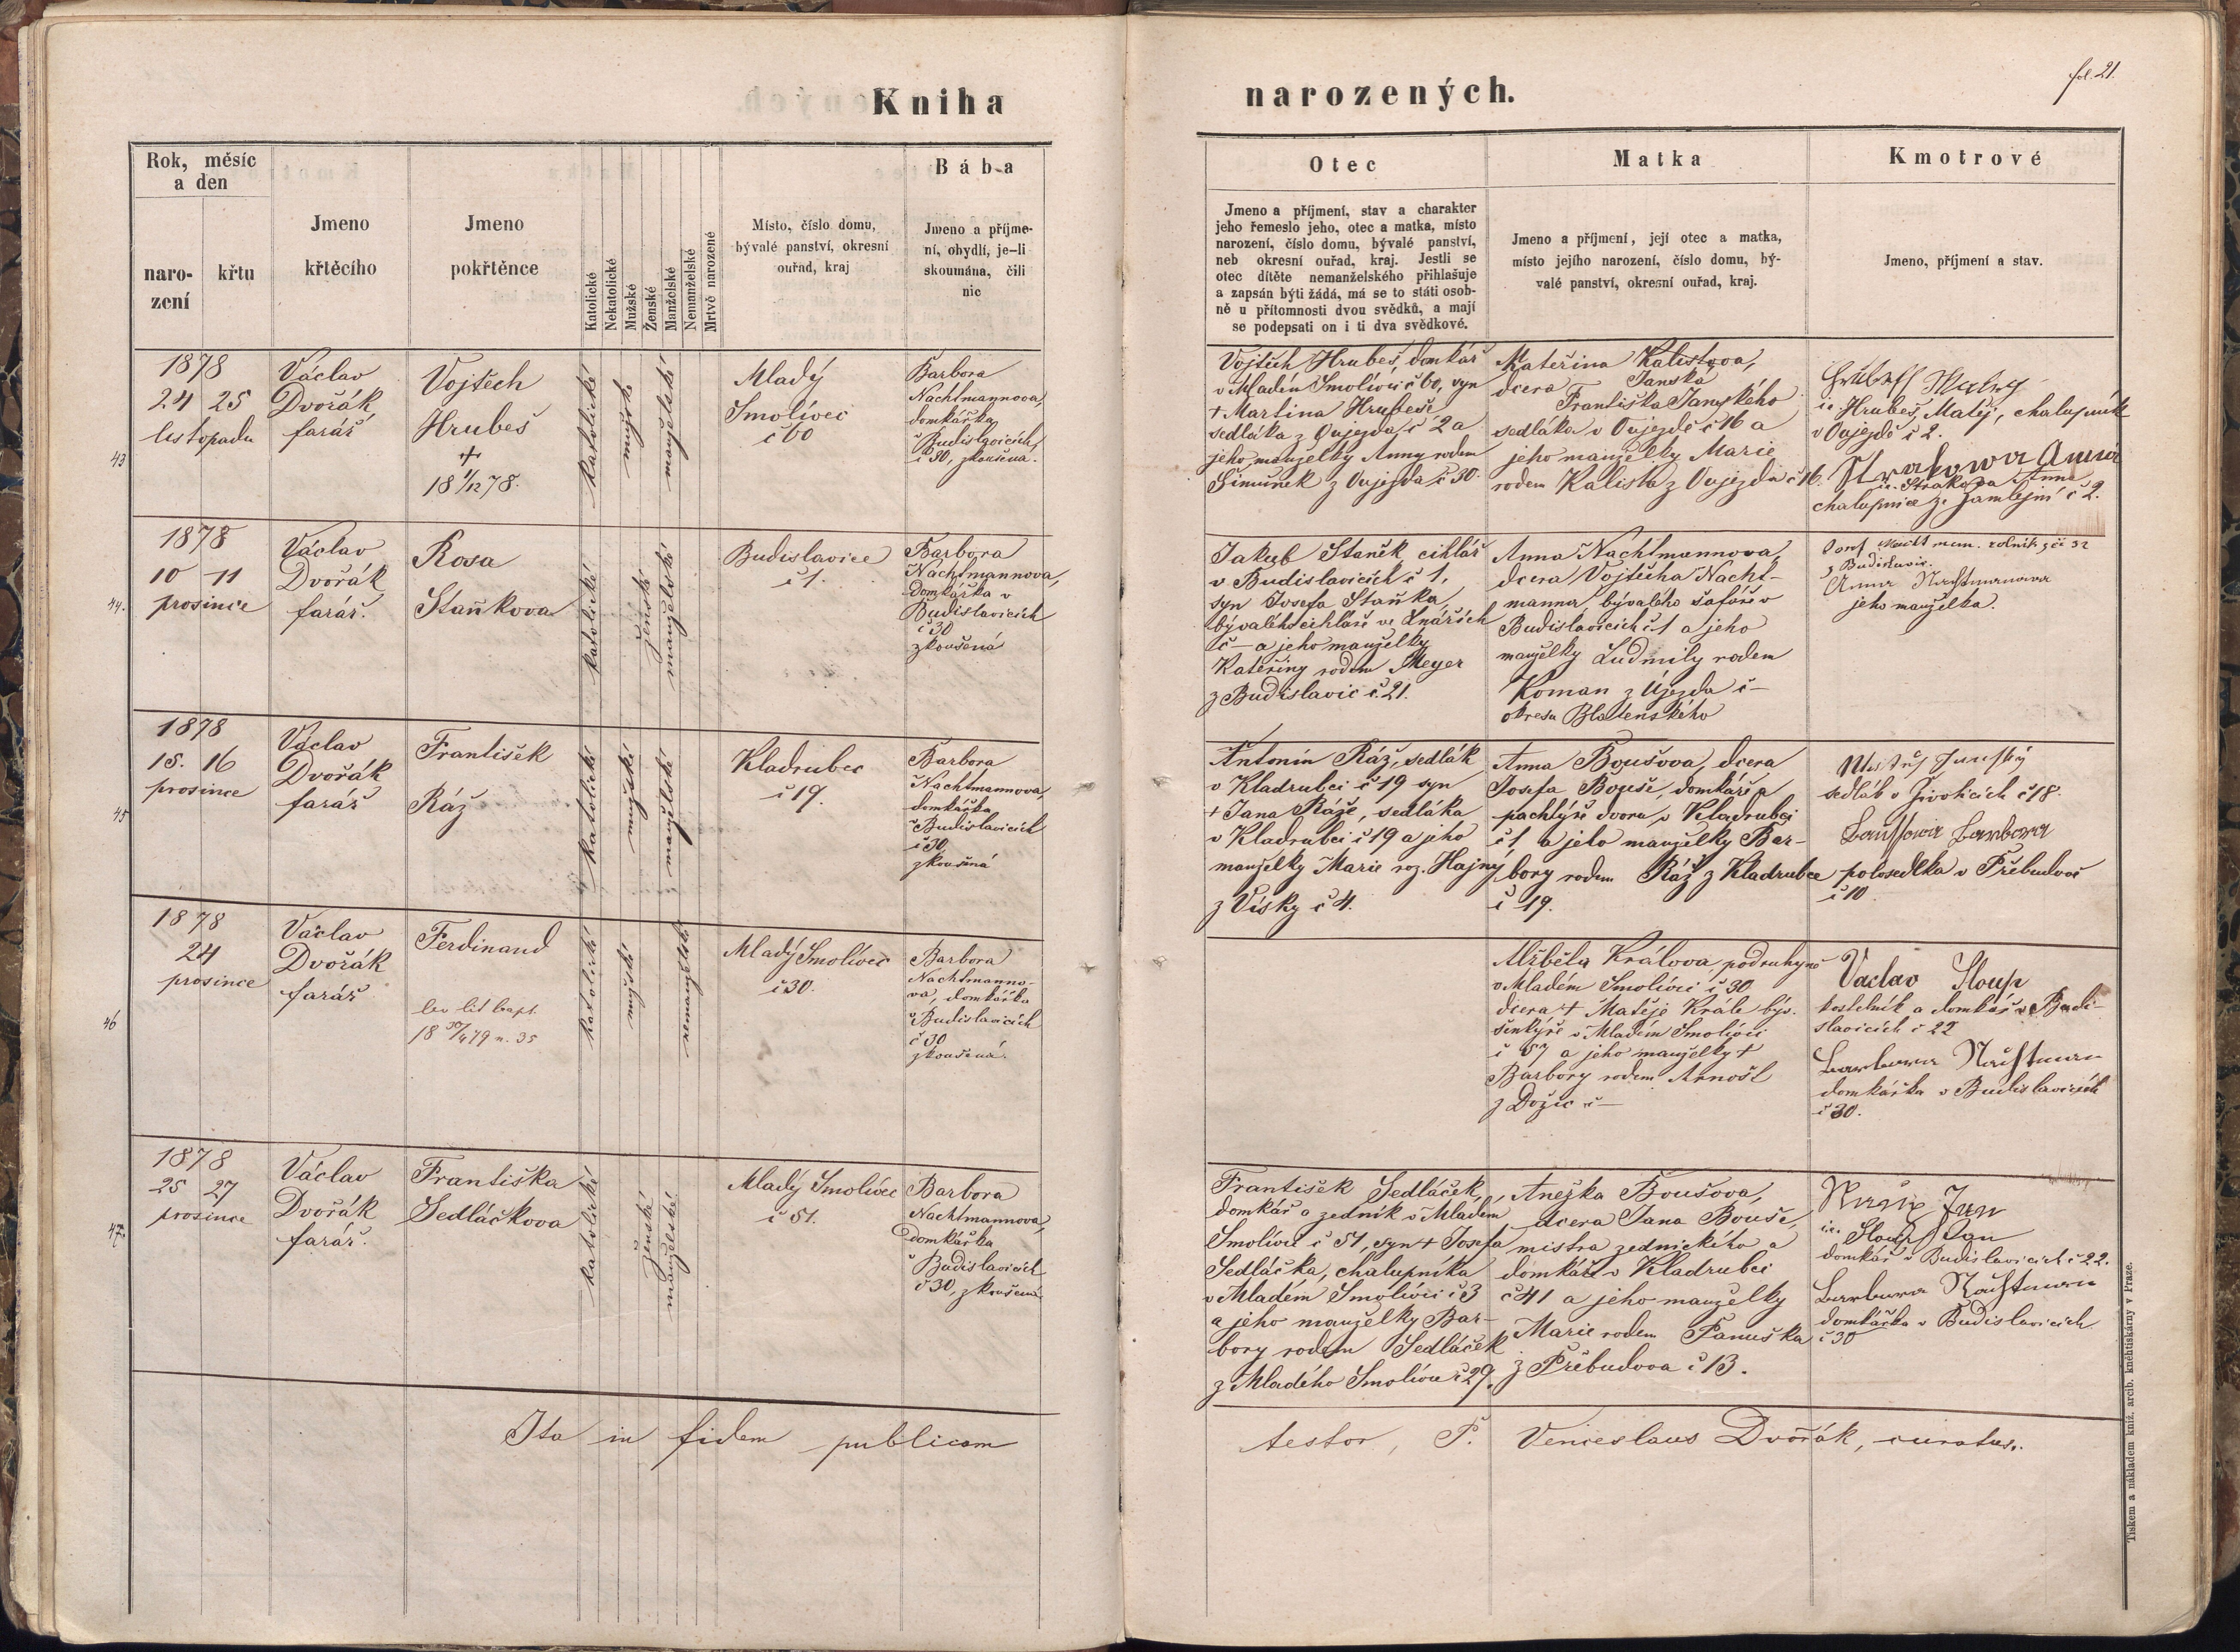 Kniha
narozených.
fol. 21.
Rok, měsíc
a den
naro-
zení
křtu
Jmeno
křtěcího
Jmeno
pokřtěnce
Katolické
Nekatolické
Mužské
Ženské
Manželské
Nemanželské
Mrtvě narozené
Místo, číslo domu,
bývalé panství, okresní
ouřad, kraj
Bába
Jmeno a příjme-
ní, obydlí, je-li
skoumána, čili
nic
Otec
Jmeno a příjmení, stav a charakter
jeho řemeslo jeho, otec a matka, místo
narození, číslo domu, bývalé panství,
neb okresní ouřad, kraj. Jestli se
otec dítěte nemanželského přihlašuje
a zapsán býti žádá, má se to státi osob-
ně u přítomnosti dvou svědků, a mají
se podepsati on i ti dva svědkové.
Matka
Jmeno a příjmení, její otec a matka,
místo jejího narození, číslo domu, bý-
valé panství, okresní ouřad, kraj.
Kmotrové
Jmeno, příjmení a stav.
43
1878
24 25
listopadu
Václav
Dvořák,
farář
Vojtěch
Hrubeš
+
18 1/12 78.
katolické
mužské
manželské
Mladý
Smolivec
č 60
Barbora
Nachtmannova,
domkářka
v Budislavicích,
č 30, zkoušena.
Vojtěch Hrubeš, domkář
v Mladém Smolivci č 60, syn
+ Martina Hrubeše
sedláka z Oujezda č 2 a
jeho manželky Anny rodem
Šimůnek z Oujezda č 30.
Kateřina Kalistova,
Janská
dcera Františka Janského
sedláka v Oujezdě č 16 a
jeho manželky Marie
rodem Kalista z Oujezda č 16.
ie Hrubeš, Matěj, chalupník
v Oujezdě č 2.
Strakowa Anna
ie. Strakova Anna
chalupnice ze Jamlejní č 2.
44.
1878
10 11
prosince
Václav
Dvořák
farář.
Rosa
Staňkova
katolické
ženské
manželské
Budislavice
č 1.
Barbora
Nachtmannova,
Domkářka v
Budislavicích
č 30
zkoušená
Jakub Staněk, cihlář
v Budislavicích č 1,
syn Josefa Staňka,
bývalého cihláře ve Lnářích
č — a jeho manželky
Kateřiny rodem Meyer
z Budislavic č. 21.
Anna Nachtmannova,
dcera Vojtěcha Nacht-
manna, bývalého šafáře v
Budislavicích č 1 a jeho
manželky Ludmily rodem
Koman z Újezda č —
okresu Blatenského
rolník z č 32
z Budislavic.
Anna Nachtmanowa
jeho manželka.
45
1878
15. 16
prosince
Václav
Dvořák
farář
František
Ráž
katolické
mužské
manželské
Kladrubec
č 19.
Barbora
Nachtmannova,
domkářka
v Budislavicích
č 30,
zkoušená
Antonín Ráž, sedlák
v Kladrubci č 19 syn
+ Jana Ráže, sedláka
v Kladrubci č 19 a jeho
manželky Marie roz. Hajný
z Vísky č 4.
Anna Boušova, dcera
Josefa Bouše, domkáře a
pachtýře dvora v Kladrubci
č 1 a jeho manželky Bar-
bory rodem Ráž z Kladrubce
č 19.
sedlák v Životicích č 18.
Barbora
polosedlka v Přebudově
č 10
46
1878
24
prosince
Václav
Dvořák
farář
Ferdinand
lev lit bapt.
18 30/4 79 n. 35
katolické
mužské
nemanželské
Mladý Smolivec
č 30.
Barbora
Nachtmanno-
va, domkářka
v Budislavicích
č 30
zkoušená.
Alžběta Králova, podruhyně
v Mladém Smolivci č 30
dcera + Matěje Krále býv.
šenkýře v Mladém Smolivci
č 57 a jeho manželky +
Barbory rodem Arnošt
z Dožic č —
Vaclav Sloup
kostelník a domkář v Budi-
slavicích č 22
Barbora Nachtman
domkářka v Budislavicích
č 30.
47.
1878
25 27
prosince
Václav
Dvořák
farář.
Františka
Sedláčkova
katolické
ženské
manželské
Mladý Smolivec
č 51.
Barbora
Nachtmannova,
Domkářka
v Budislavicích
č 30, zkoušená
František Sedláček,
domkář a zedník v Mladém
Smolivci č 51, syn + Josefa
Sedláčka, chalupníka
v Mladém Smolivci č 3
a jeho manželky Bar-
bory rodem Sedláček
z Mladého Smolivce č 29.
Anežka Boušova,
dcera Jana Bouše,
mistra zednického a
domkáře v Kladrubci
č 41 a jeho manželky
Marie rodem Panuška
z Přebudova č 13.
ie. Sloup Jan
domkář v Budislavicích č 22.
Barbora Nachtman
domkářka v Budislavicích
č 30
Ita in fidem publicam
testor, P. Venceslaus Dvořák, curatus.
Tiskem a nákladem kníž. arcib. kněhtiskárny v Praze.